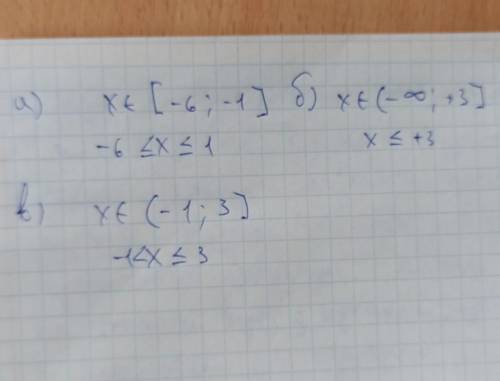 а) x ∈ [-6; -1] б) x ∈ (-∞; +3]
-6 ≤ x ≤ 1 x ≤ +3
в) x ∈ (-1; 3]
-1 < x ≤ 3